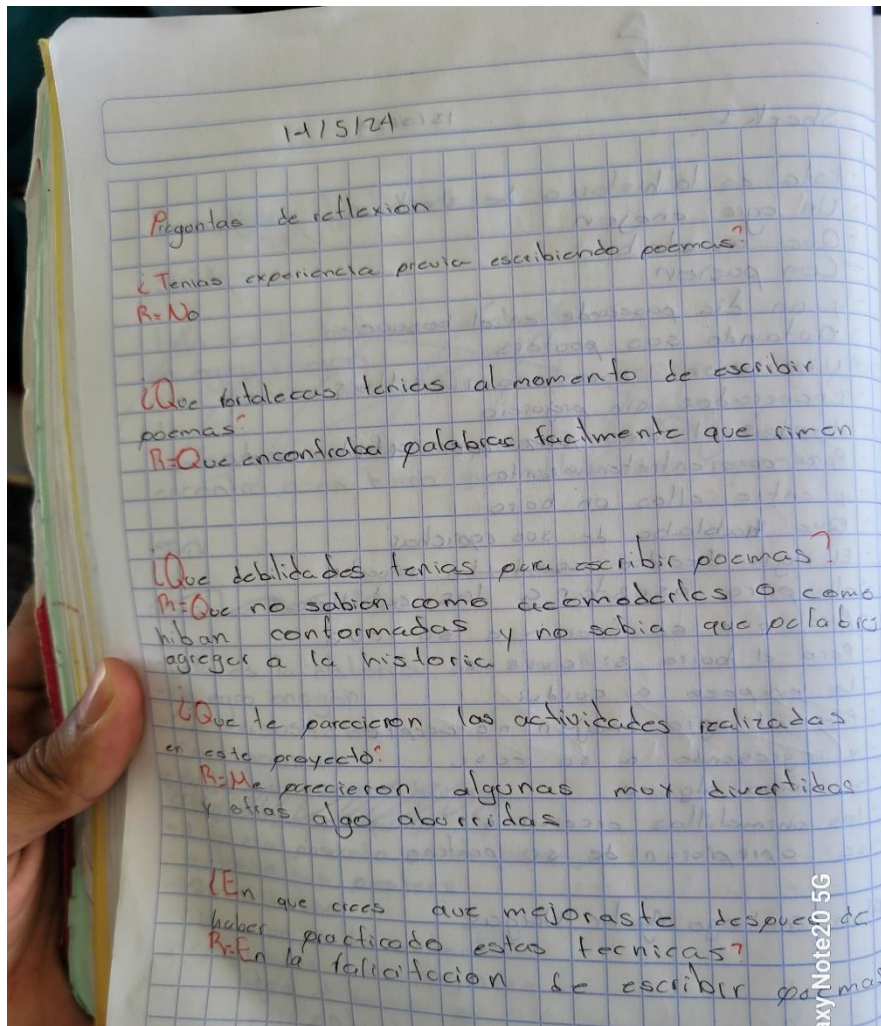 14/5/24
Pregontas de reflexion
¿Tenias experiencia previa escribiendo poemas?
R=No
¿Que fortalecas tenias al momento de escribir
poemas?
R=Que encontraba palabras facilmente que rimen
¿Que debilidades tenias para escribir poemas?
R=Que no sabien como acomodarlos o como
hiban conformadas y no sabia que palabras
agregar a la historia
¿Que te parecieron las actividades realizadas
en este proyecto?
R=Me parecieron algunas muy divertibas
y otras algo aburridas
¿En que crees que mejoraste despues de
haber practicado estas tecnicas?
R=En la falicitacion de escribir poemas
xy Note20 5G